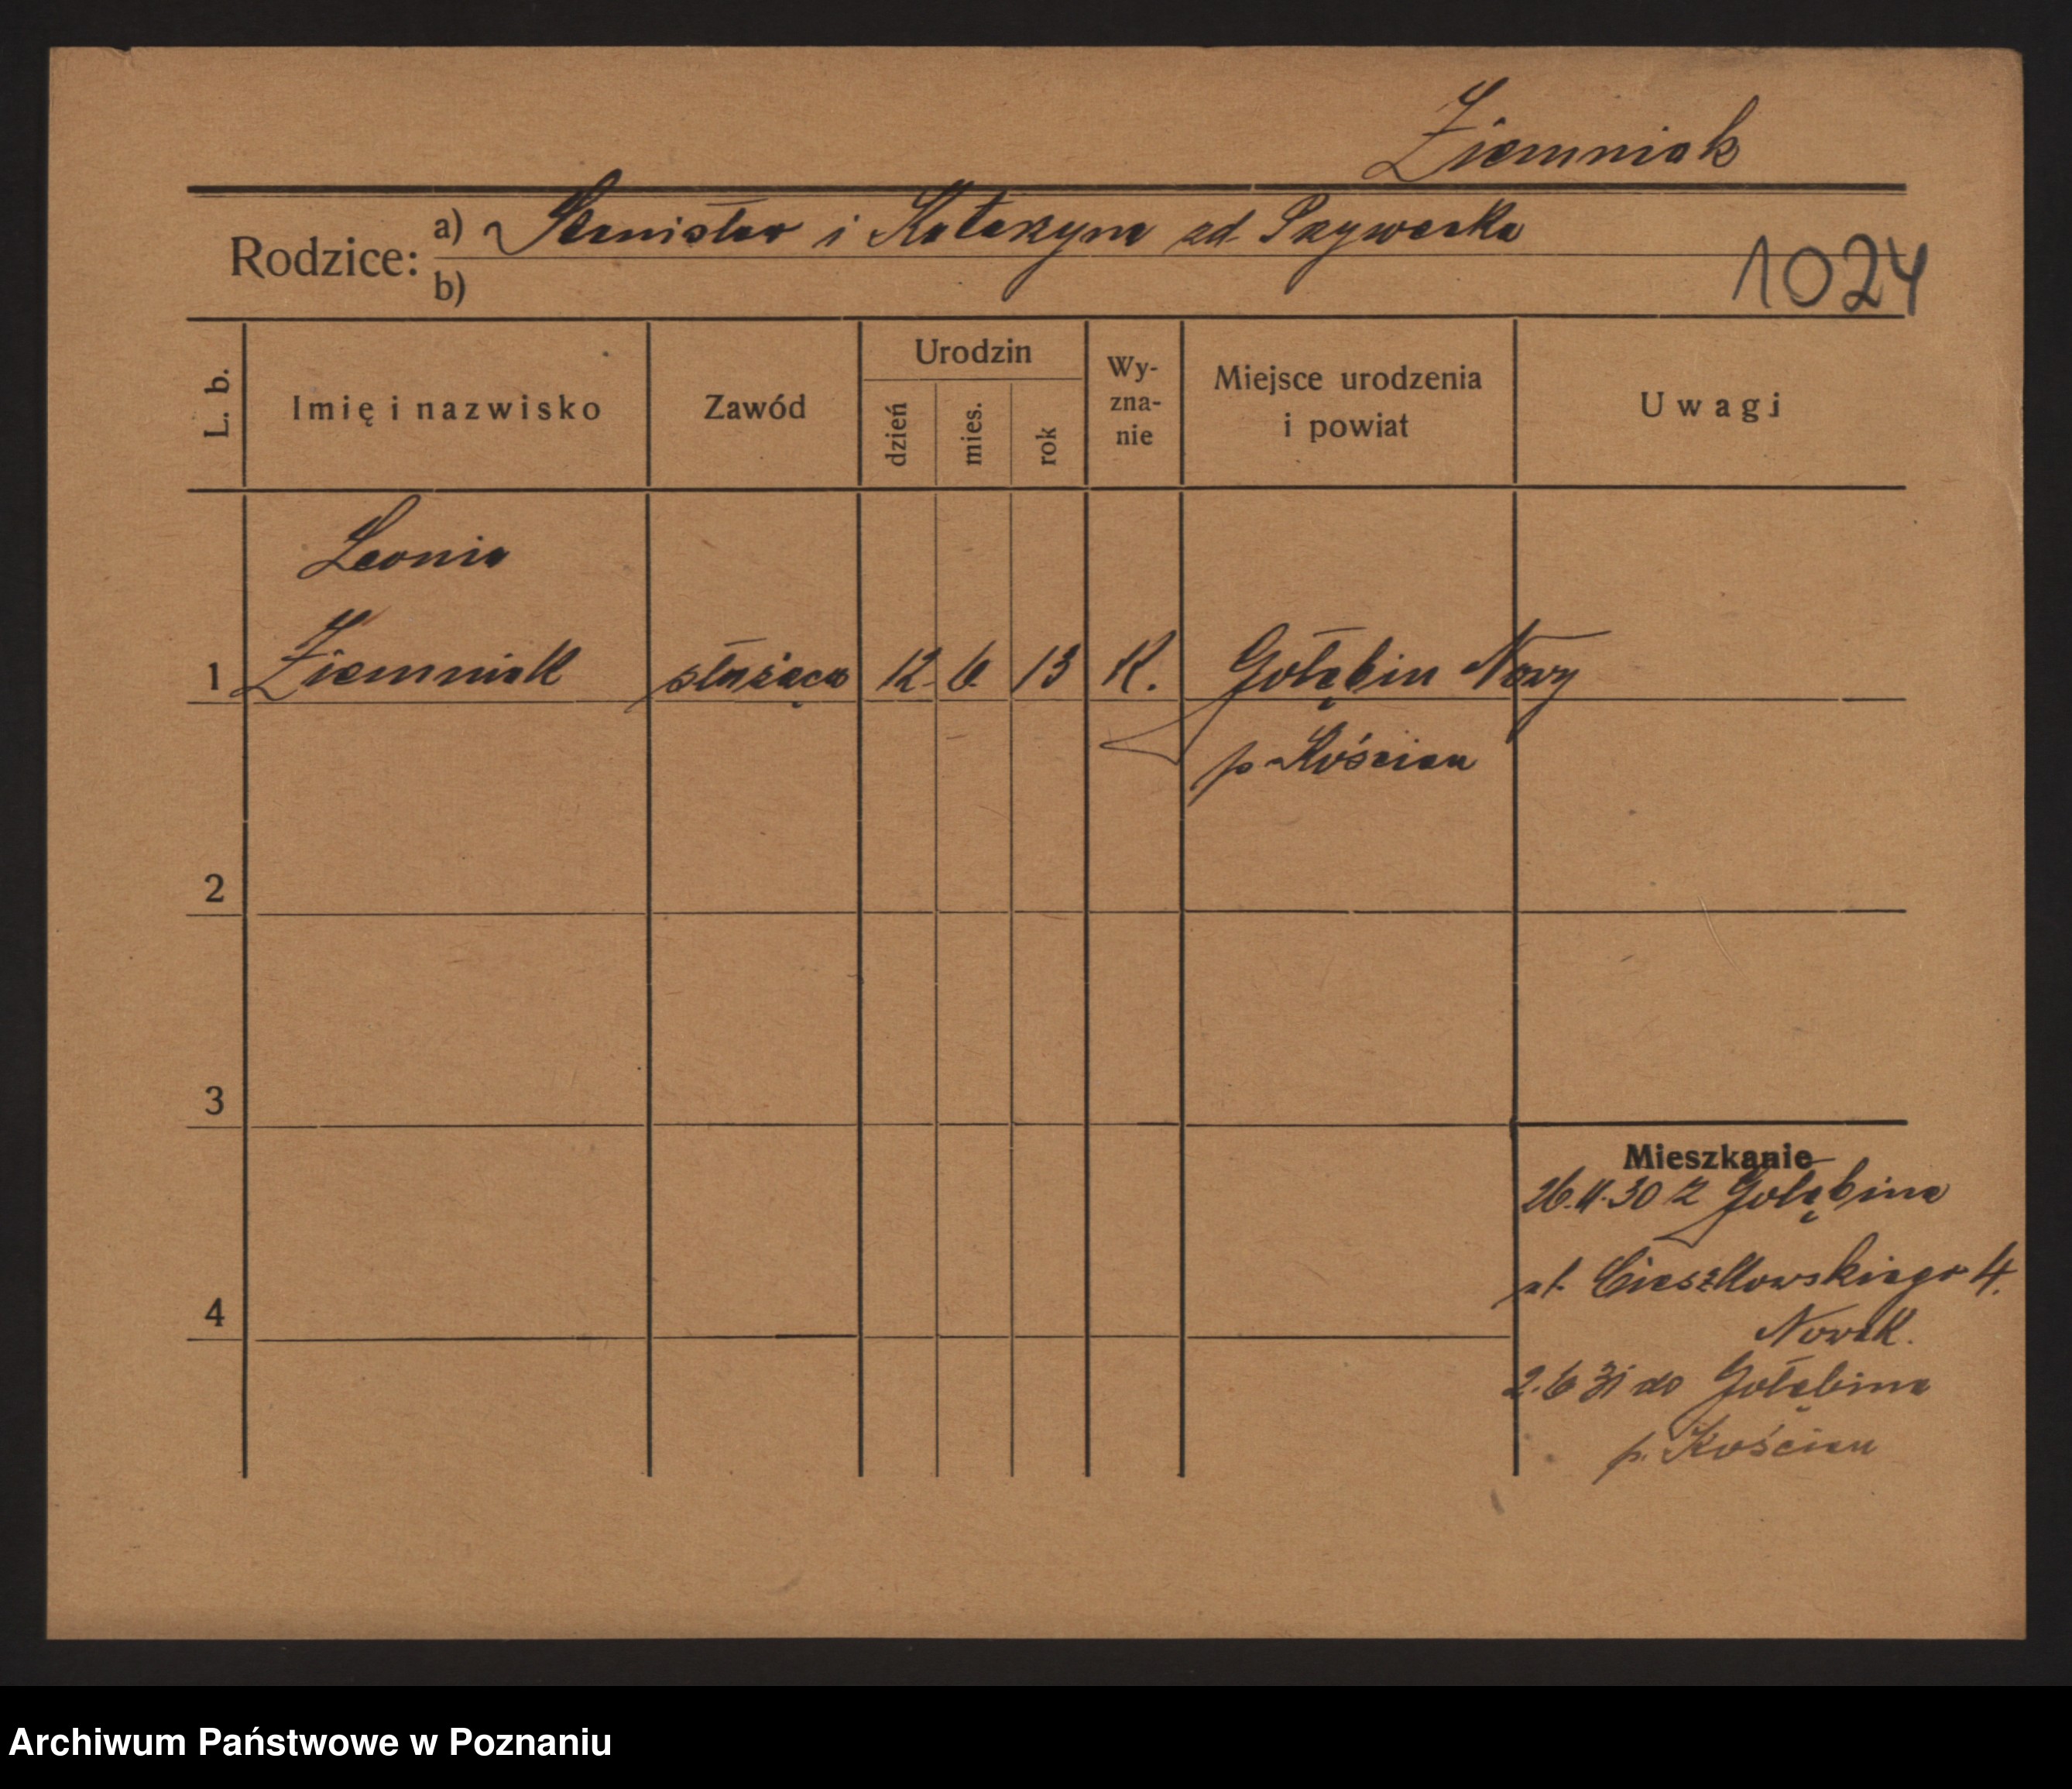 Ziemniak
Rodzice: a) Stanisław i Katarzyna zd.
b)
1024
L. b. Imię i nazwisko Zawód Urodzin dzień mies. rok Wy-zna-nie Miejsce urodzenia i powiat Uwagi
Leonia
1 Ziemniak służąca 12. 6. 13 K. Gołębin Nowy
p. Kościan
2
3
Mieszkanie
26. 11. 30 z Gołębina
4
Cieszkowskiego 4.
Nowak.
2. 6 31 do Gołębina
p. Kościan
Archiwum Państwowe w Poznaniu